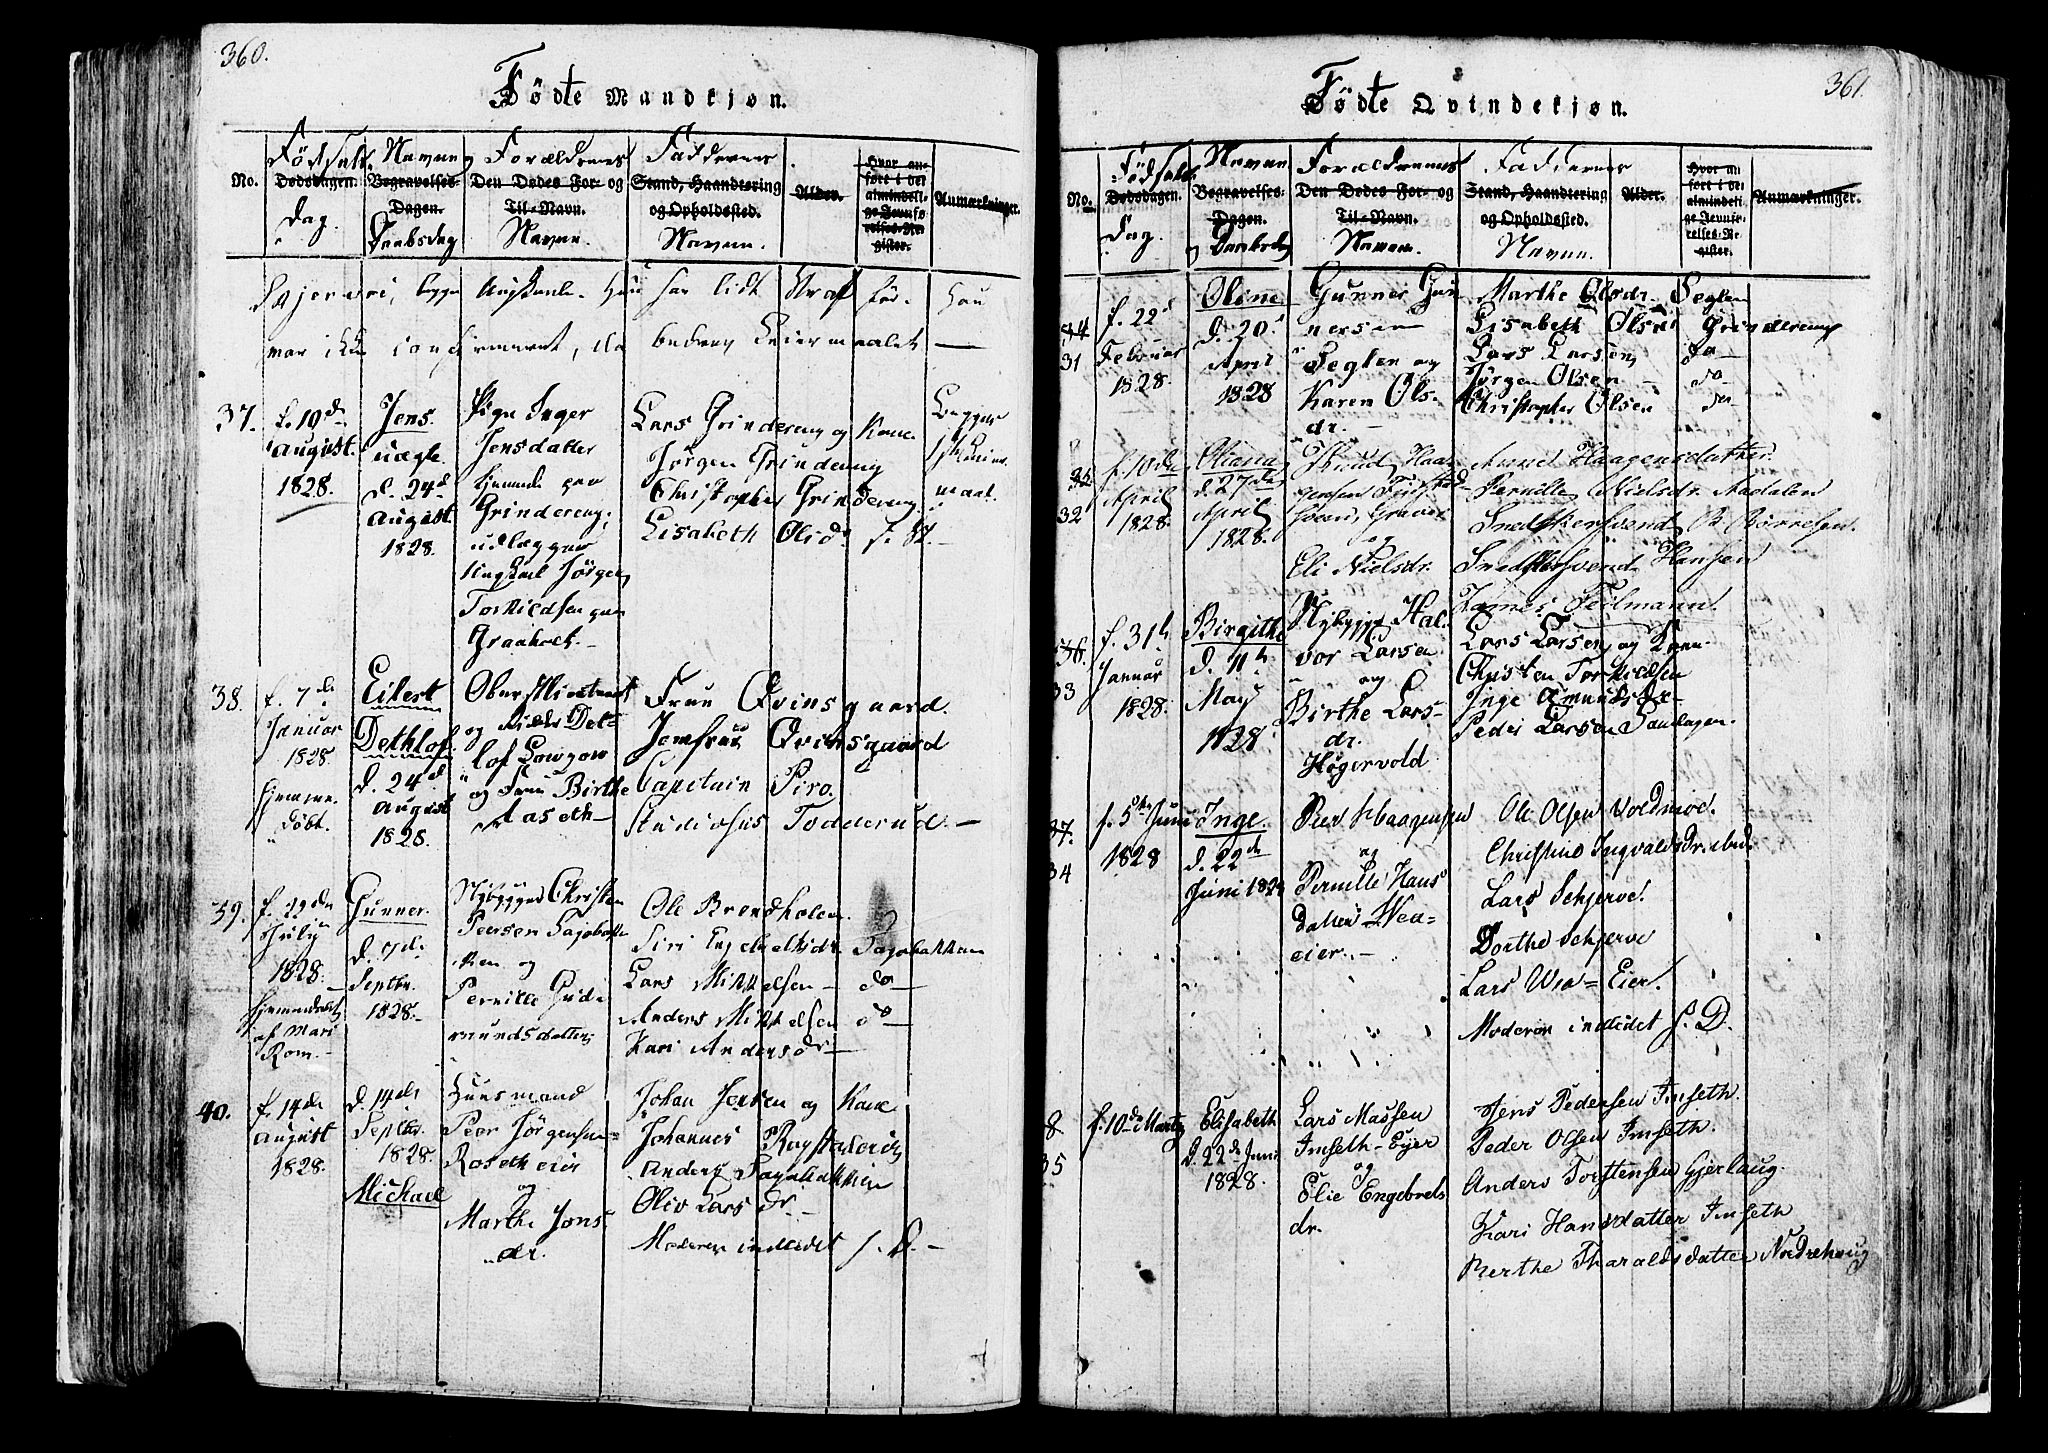 360.
Fødte Mandkjøn.
No.
Fødsels
Dødsdagen.
Dag.
Navn og
Begravelses-
Dagen.
Daabsdag
Forældrenes
Den Dødes For- og
Til-Navn.
Navne.
Faddernes
Stand, Haandtering
og Opholdssted.
Navne.
Alder.
Hvor an-
ført i det
almindeli-
ge Jevnfø-
relses-Re-
gister.
Anmærkninger.
begge har lidt Straf for. Han
var ikke confirmeret, da
37.
f. 19d
August.
1828.
Jens.
uægte.
d. 24d
August.
1828.
Pige Inger
Jensdatter
hjemme paa
Grindereng;
udlægger
Ungkarl Jørgen
Torkildsen paa
Graaholt.
Lars Grindereng og Kone
Jørgen Grindereng
Christopher Grindereng
Lisabeth Olsdr.
Begges
maal.
38.
f. 7de
Januar
1828.
hjemme-
døbt.
Eilert
Dethlof.
d. 24d
August
1828.
Oberstlieutnant
og Ridder Det-
lof
og Frue Birthe
Aaseth
Frue Qvinsgaard.
Jomfrue Qvinsgaard
Capitain Piro.
Studiosus Todderud.
39.
f. 29de
July
1828.
hjemmedøbt
af Mari
Rom.
Gunner.
d. 7de
Septbr.
1828.
Nybygger Christen
Peersen Sagebak-
ken og
Pernille Gud-
mundsdatter
Ole Brendholen.
Siri Engebretsdr. Sagebakken
Lars Mikkelsen do
Anders Mikkelsen do
Kari Andersdr
40.
f. 14de
August
1828.
d. 14de
Septbr.
1828.
Michael
Huusmand
Peer Jørgensen
Roseth eier
og
Marthe Jons
dr.
Johan Jensen og Kone
Johannes
Anders Sagebakken
Oliv Lars dr.
Moderen indledet s. D.
361.
Fødte Qvindekjøn.
No.
Fødsels
Dødsdagen.
Dag.
Navn
Begravelses-
Dagen.
og Daabsdag
Forældrenes
Den Dødes For- og
Til-Navn.
Navne.
Faddernes
Stand, Haandtering
og Opholdssted.
Navne.
Alder.
Hvor an-
ført i det
almindeli-
ge Jevnfø-
relses-Re-
gister.
Anmærkninger.
34
31
f. 22d
Februar
1828.
Oline
d. 20d
April
1828
Gunner Gun
nersen
Seglen og
Karen Ols-
dr.
Marthe Olsdr. Seglen
Lisabeth Olsdr Grindereng
Lars Larsen do
Jørgen Olsen do
Christopher Olsen do
35
32
f. 10de
April
1828.
Oliana
d. 27de
April
1828.
og
Eli Nielsdr.
Anne Haagensdatter.
Pernille Nielsdr. Aadalen
Smedsvend B. Børresen.
Smedsvend Hansen
Feilmann.
36.
33
f. 31te
Januar
1828.
Birgithe
d. 11te
May
1828
Nybygger Hal-
vor Larsen
og
Birthe Lars-
dr.
Høgervold
Lars Larsen og Kone
Christen Torkildsen
Inge Amundsdr
Peder Larsen
37.
34
f. 5te Juni
1828
Inge.
d. 22de
Juni 1828
Peer Haagensen
og
Pernille Hans
datter Wea-
eier.
Ole Olsen Voldmoe.
Christine Ingvaldsdr. ibid.
Lars Schjerve.
Dorthe Schjerve
Lars Wea-Eier.
Moderen indledet s. D.
8.
35
f. 10de Martz
Elisabeth
d. 22de Juni
1828.
Lars Massen
Imseth-Eyer
og
Elie Engebrets
dr.
Jens Pedersen Imseth.
Peder Olsen Imseth.
Anders Torstensen Gjerlaug.
Kari Hansdatter Imseth
Berthe Tharaldsdatter Nordrehaug